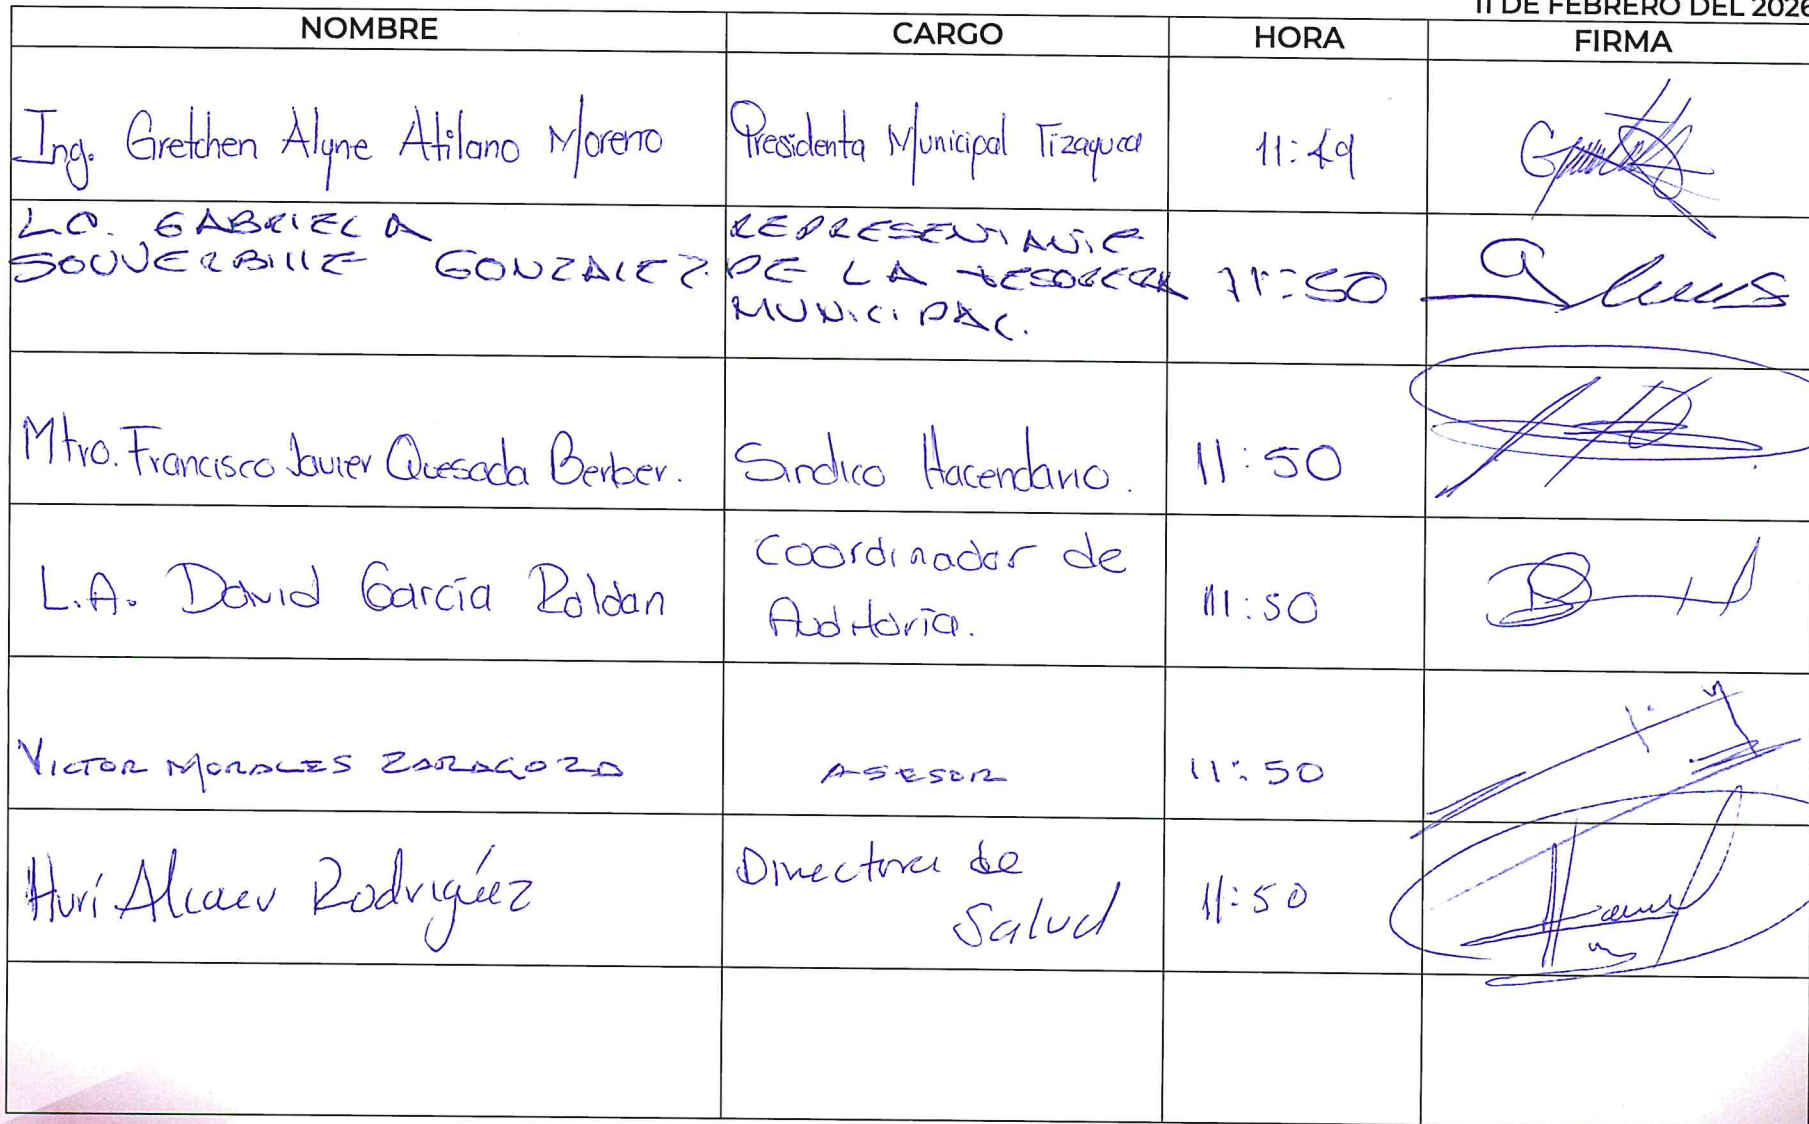 11 DE FEBRERO DEL 2026
NOMBRE CARGO HORA FIRMA
Ing. Gretchen Alyne Atilano Moreno Presidenta Municipal Tizayuca 11:49
LC. GABRIELA
SOUVERBILLE GONZALEZ.
REPRESENTANTE
DE LA TESORERA
MUNICIPAL.
11:50
Mtro. Francisco Javier Quesada Berber. Sindico Hacendario. 11:50
L.A. David García Roldan
Coordinador de
Auditoría.
11:50
VICTOR MORALES ZARAGOZA ASESOR 11:50
Hurí Rodríguez
Directora de
Salud
11:50